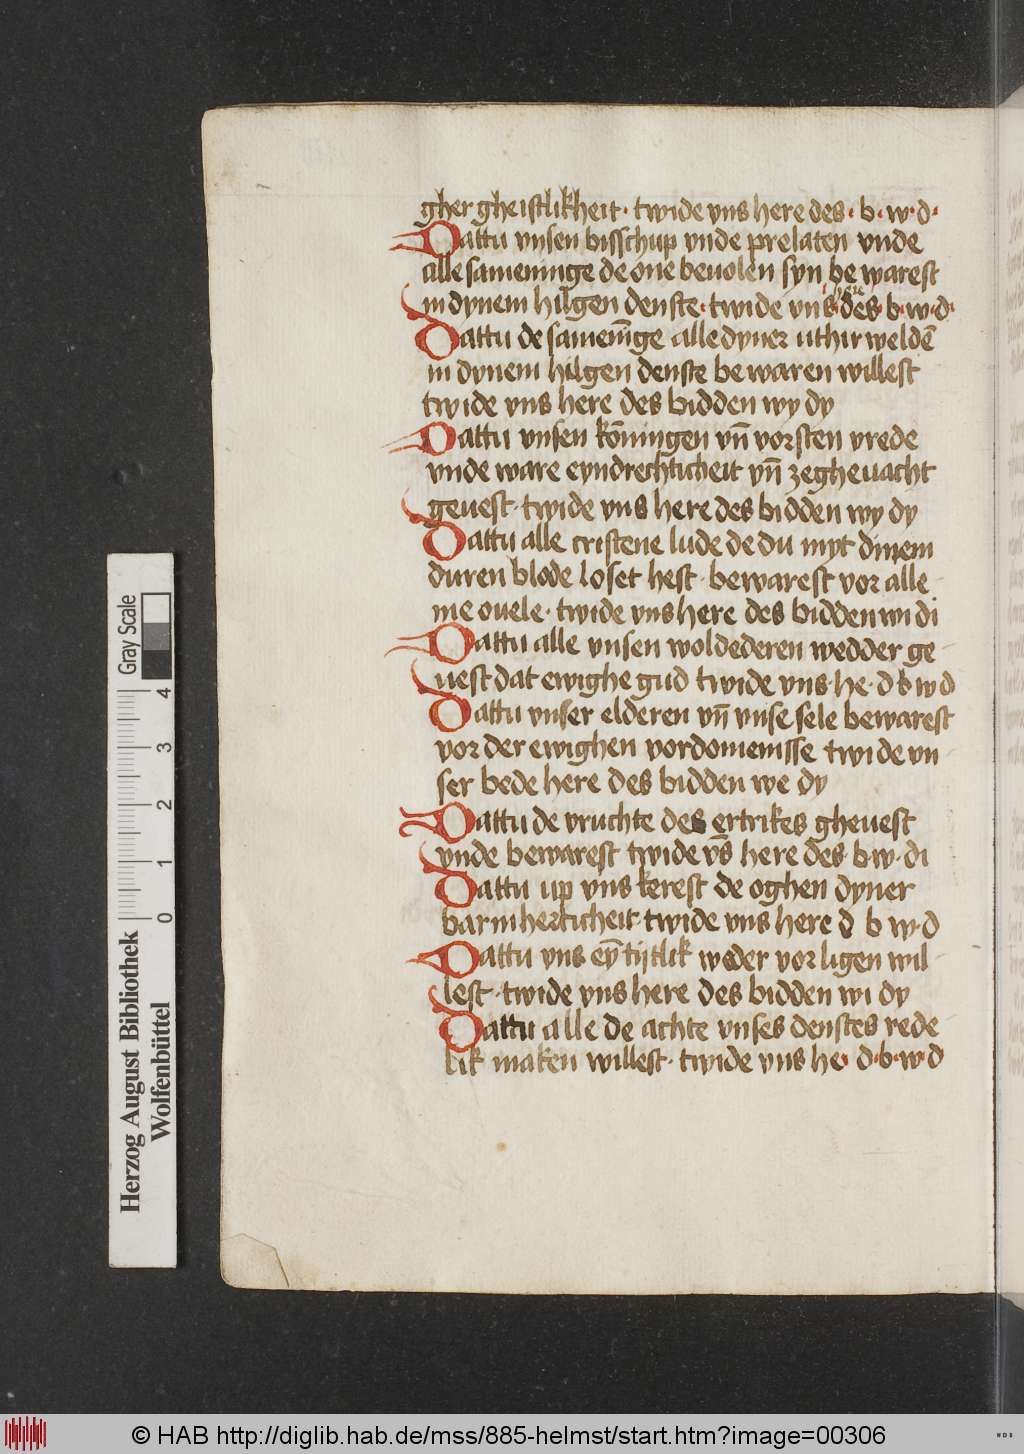 gher gheistlikheit · twide vns here des · b · w · d ·
Dattu vnsen bisschup vnde prelaten vnde
alle sameninge de one beuolen syn be warest
in dynem hilgen denste · twide vns here des · b · w · d ·
Dattu de samenīge alle dyner uthir weldē
in dynem hilgen denste be waren willest
twide vns here des bidden wy dy
Dattu vnsen kōningen vn̄ vorsten vrede
vnde ware eyndrechticheit vn̄ zegheuacht
geuest · twide vns here des bidden wy dy
Dattu alle cristene lude de du myt dinem
duren blode loset hest · bewarest vor alle
me ouele · twide vns here des bidden wi di
Dattu alle vnsen woldederen wedder ge
uest dat ewighe gud twide vns · he · d b w d
Dattu vnser elderen vn̄ vnse sele bewarest
vor der ewighen vordomenisse twide vn
ser bede here des bidden we dy
Dattu de vruchte des ertrikes gheuest
vnde bewarest twide vs̄ here des · b · w · di
Dattu up vns kerest de oghen dyner
barmherticheit · twide vns here d b w · d
Dattu vns eȳ tijtlik weder vorligen wil
lest · twide vns here des bidden wi dy
Dattu alle de achte vnses denstes rede
lik maken willest · twide vns he · d · b · w · d
Gray Scale
4
3
2
1
0
Herzog August Bibliothek
Wolfenbüttel
© HAB http://diglib.hab.de/mss/885-helmst/start.htm?image=00306
WDB